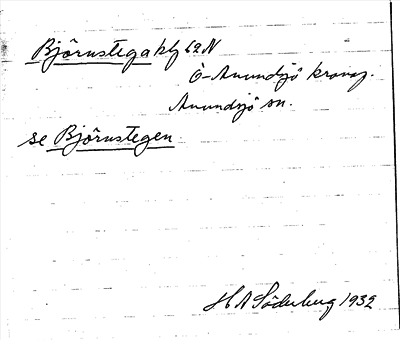 Björnstega klg 62N
Ö-Anundsjö kronog.
Anundsjö sn.
se Björnstegen
H A Söderberg 1932